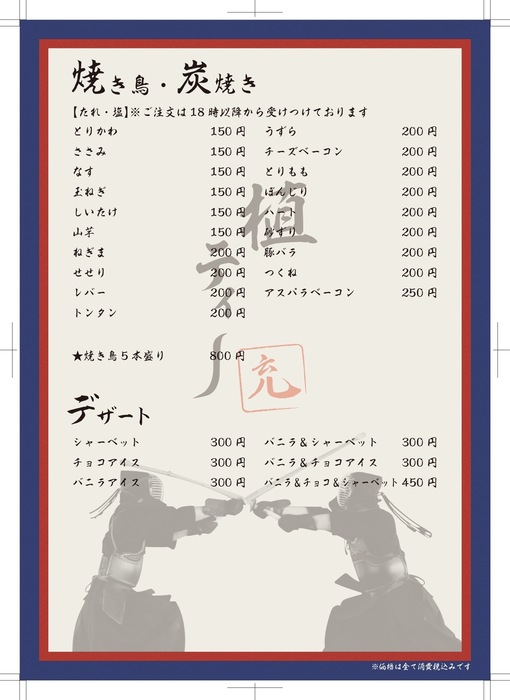 焼き鳥・炭焼き
【たれ・塩】※ご注文は18時以降から受けつけております
とりかわ 150円 うずら 200円
ささみ 150円 チーズベーコン 200円
なす 150円 とりもも 200円
玉ねぎ 150円 ぼんじり 200円
しいたけ 150円 ハート 200円
山芋 150円 砂ずり 200円
ねぎま 200円 豚バラ 200円
せせり 200円 つくね 200円
レバー 200円 アスパラベーコン 250円
トンタン 200円
植ティー
充
★焼き鳥5本盛り 800円
デザート
シャーベット 300円 バニラ&シャーベット 300円
チョコアイス 300円 バニラ&チョコアイス 300円
バニラアイス 300円 バニラ&チョコ&シャーベット 450円
※価格は全て消費税込みです